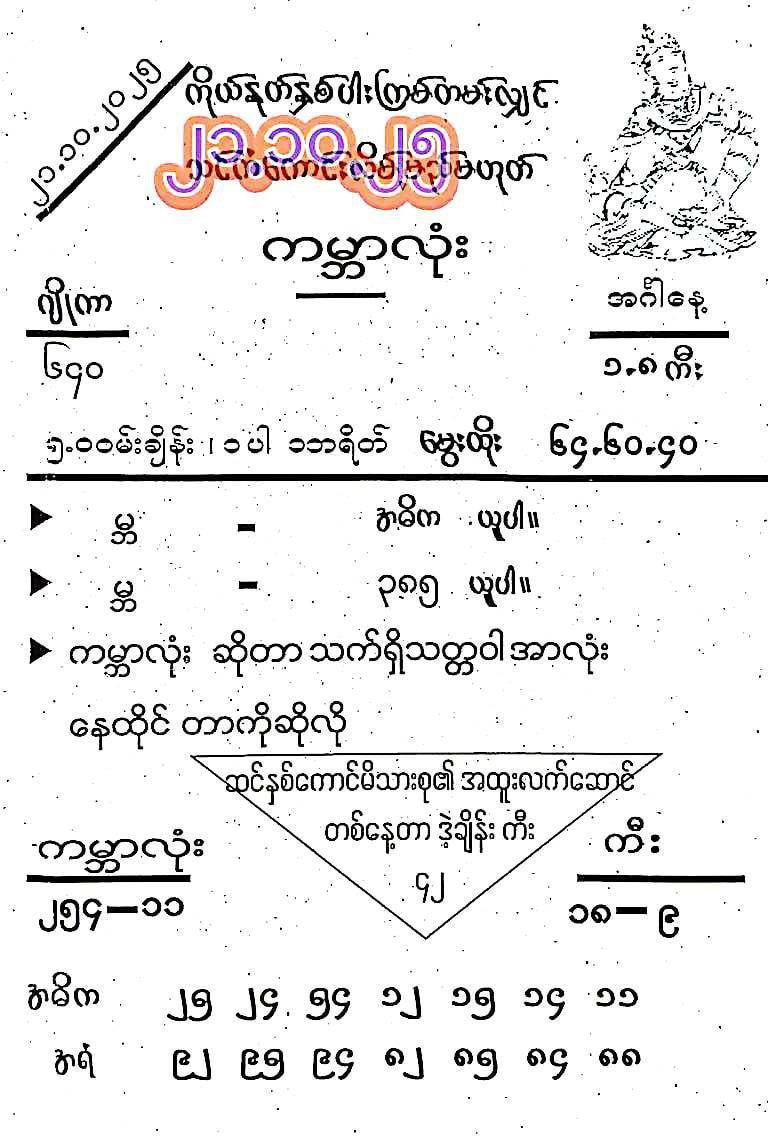 ၂၁.၁၀.၂၀၂၅
ကိုယ်နုတ်နှစ်ပါးကြမ်တမ်းလျှင်
၂၁.၁၀.၂၅
မည်မဟုတ်
ကမ္ဘာလုံး
ဂျိုကာ
အင်္ဂါနေ့
၆၄၀
၁.၈ ကီး
၅.၀၀ဝမ်းချိန်း ၊ ၁ ပါ ၁ဘရိတ် မွေးထိုး ၆၄.၆၀.၄၀
▶ မ္ဘ - အဓိက ယူပါ။
▶ မ္ဘ - ၃၈၅ ယူပါ။
▶ ကမ္ဘာလုံး ဆိုတာ သက်ရှိသတ္တဝါ အာလုံး
နေထိုင် တာကိုဆိုလို
ဆင်နှစ်ကောင်မိသားစု၏ အထူးလက်ဆောင်
တစ်နေ့တာ ဒဲ့ချိန်း ကီး
၄၂
ကမ္ဘာလုံး
ကီး
၂၅၄–၁၁
၁၈–၉
အဓိက ၂၅ ၂၄ ၅၄ ၁၂ ၁၅ ၁၄ ၁၁
အရံ ၉၂ ၉၅ ၉၄ ၈၂ ၈၅ ၈၄ ၈၈